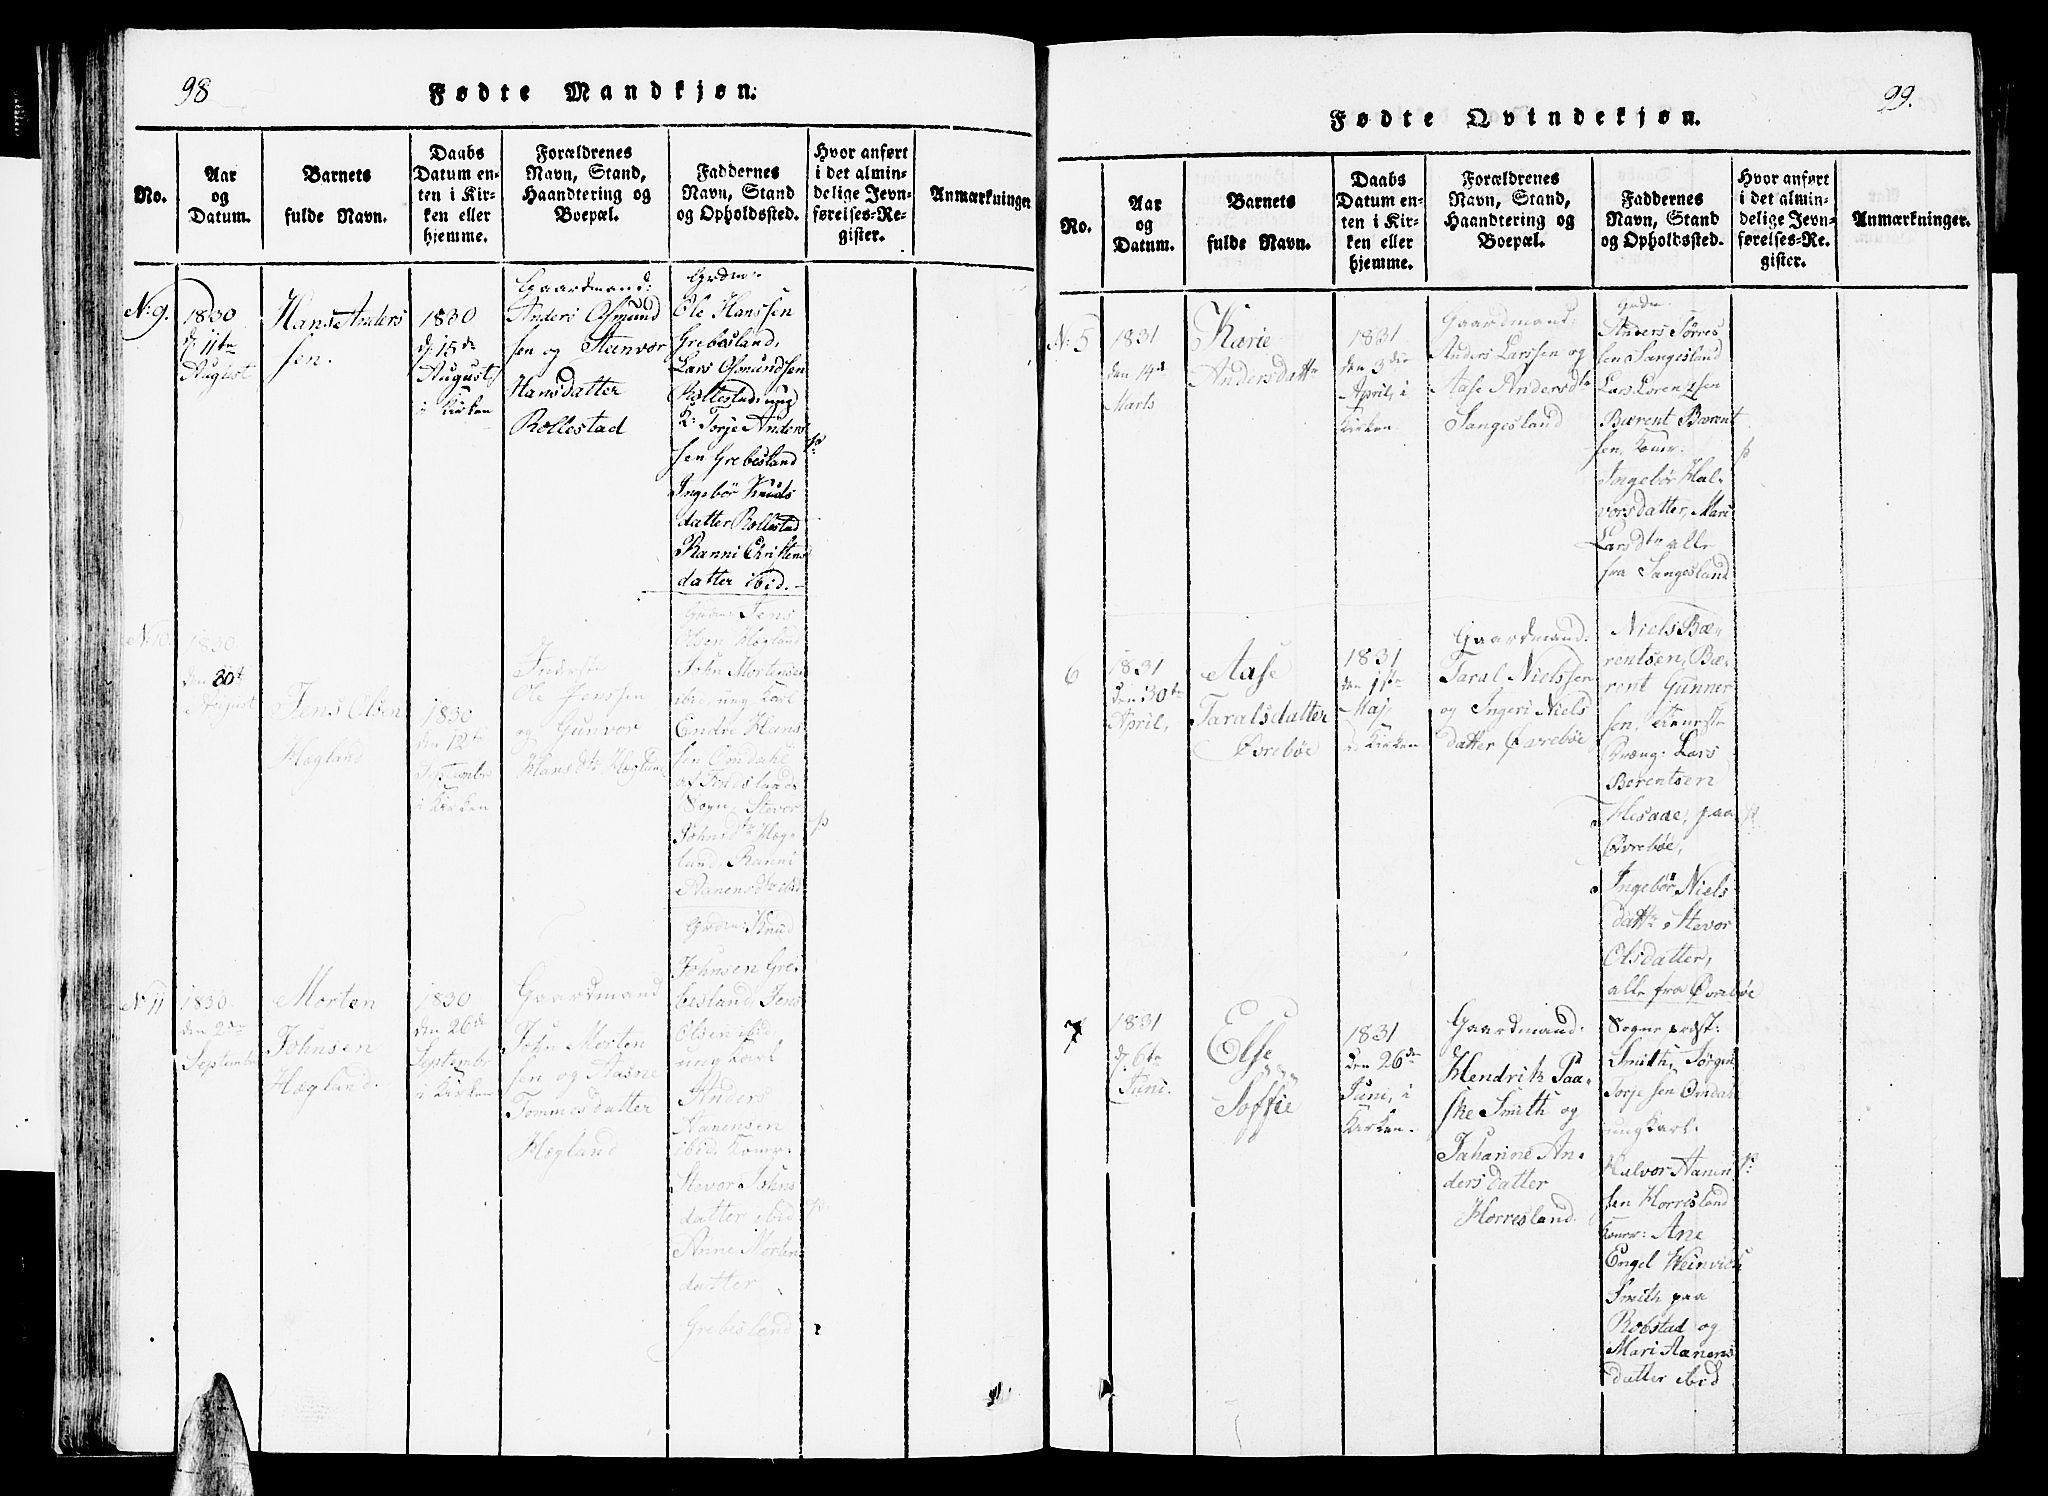 98
Fødte Mandkjøn:
No.
Aar
og
Datum.
Barnets
fulde Navn.
Daabs
Datum en-
ten i Kir-
ken eller
hjemme.
Forældrenes
Navn, Stand,
Haandtering og
Boepæl.
Faddernes
Navn, Stand
og Opholdssted.
Hvor anført
i det almin-
delige Jevn-
førelses-Re-
gister.
Anmærkninger
N: 9.
1830
d. 11te
August
Hans Anders
sen.
1830
d. 15de
August
i Kirken
Gaardmand:
Anders Osmund
sen og Steinvor
Hansdatter
Rollestad
Grdm:
Ole Hanssen
Grebesland,
Lars Osmundsen
Rollestad, ung
K: Torje Anders
sen Grebesland
Ingebør Knuds
datter Rollestad
Ranni Christens
datter ibid.
N: 10
1830
den 30t
August
Jens Olsen
Hægland
1830
den 12te
Septembr
i Kirken
Inderste
Ole Jenssen
og Gunvor
Hansdtr Hægland
Grdm: Jens
Olsen Hægland
John Mortensen
ibid, ung Karl
Endre Hans
sen Omdahl
af Findslands
Sogn, Stevor
Johnsdtr Hæg-
land, Ranni
Aanensdtr ibid
N: 11
1830
den 2den
Septembr
Morten
Johnsen
Hægland.
1830
den 26de
Septembr
i Kirken
Gaardmand
John Morten
sen og Aasne
Tommesdatter
Hægland
Grdm: Knud
Johnsen Gre-
besland, Jens
Olsen ibid
ung Karl
Anders
Aanensen
ibid, Konur:
Stevor Johns
datter ibid
Anne Morten
datter
Grebesland
99.
Fødte Qvindekjøn.
No.
Aar
og
Datum.
Barnets
fulde Navn.
Daabs
Datum en-
ten i Kir-
ken eller
hjemme.
Forældrenes
Navn, Stand,
Haandtering og
Boepæl.
Faddernes
Navn, Stand
og Opholdssted.
Hvor anført
i det almin-
delige Jevn-
førelses-Re-
gister.
Anmærkninger.
N: 5
1831
den 14d
Marts
Karie
Andersdattr
1831
den 3die
April, i
Kirken
Gaardmand:
Anders Larssen og
Aase Andersdtr
Sangesland
Grdm.
Anders Tørres
sen Sangesland
Lars Lorentzsen
Bærent Bærent
sen, Konur.
Ingebør Hal-
vorsdatter, Mari
Larsdtr alle
fra Sangesland
6
1831
den 30te
April,
Aase
Taralsdatter
Øvrebøe
1831
den 11te
Maj
i Kirken
Gaardmand.
Taral Nielssen
og Ingeri Niels
datter Øvrebøe
Niels Bæ-
rentsen, Bæ-
rent Gunner
sen,
Lars
Berentsen
paa
Øvrebøe,
Ingebør Niels
dattr, Stevor
Olsdatter,
alle fra Øvrebøe
7
1831
d. 6te
Juni.
Else
Soffie
1831
den 26de
Juni, i
Kirken.
Gaardmand:
Hendrik Paa-
ske Smith og
Taharine An-
dersdatter
Horresland.
Sognepræst:
Smith, Jørgen
Torjesen Omdal
ung Karl:
Halvor Aanen
sen Horresland
Konur: Ane
Engel Weinvich
Smith paa
Robstad og
Mari Aanens
datter ibid